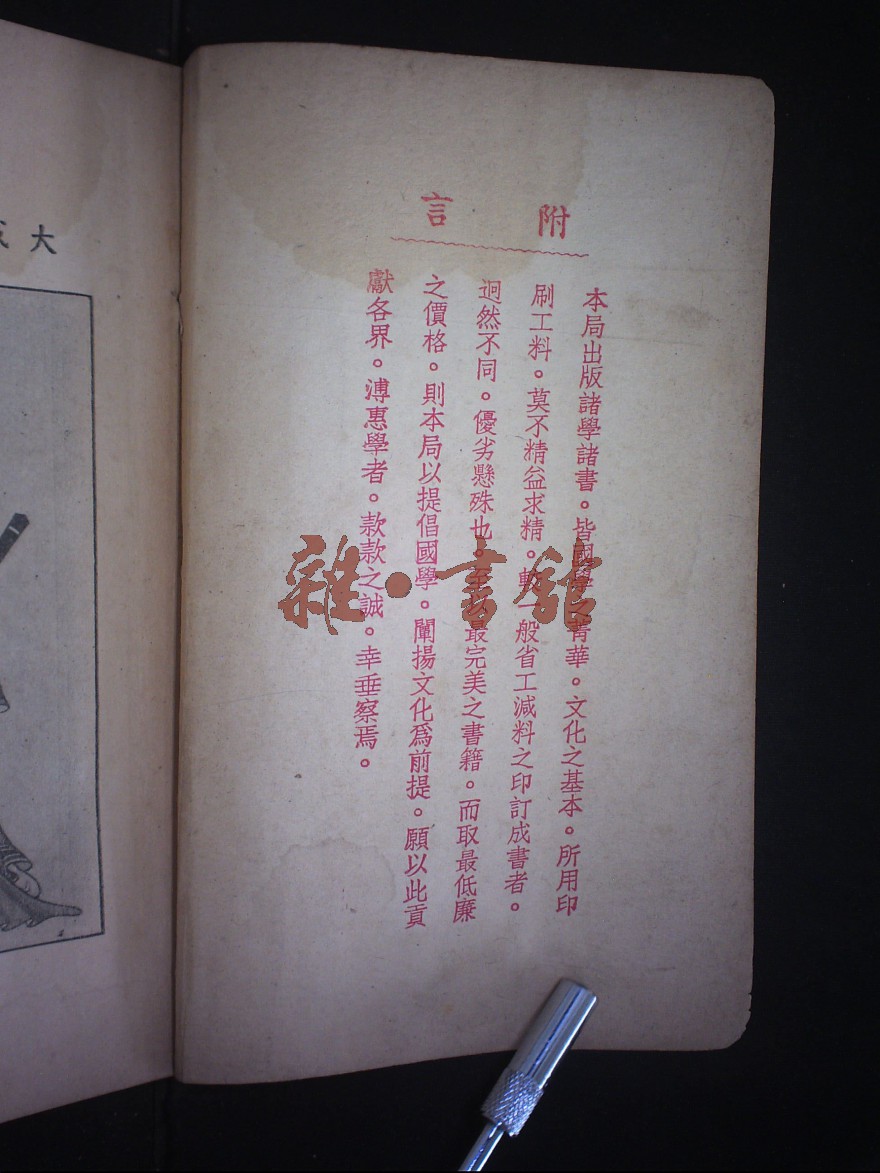 附言
本局出版諸學諸書。皆國學之菁華。文化之基本。所用印
刷工料。莫不精益求精。較一般省工減料之印訂成書者。
迥然不同。優劣懸殊也。至以最完美之書籍。而取最低廉
之價格。則本局以提倡國學。闡揚文化爲前提。願以此貢
獻各界。溥惠學者。款款之誠。幸垂察焉。
大
雜·書館